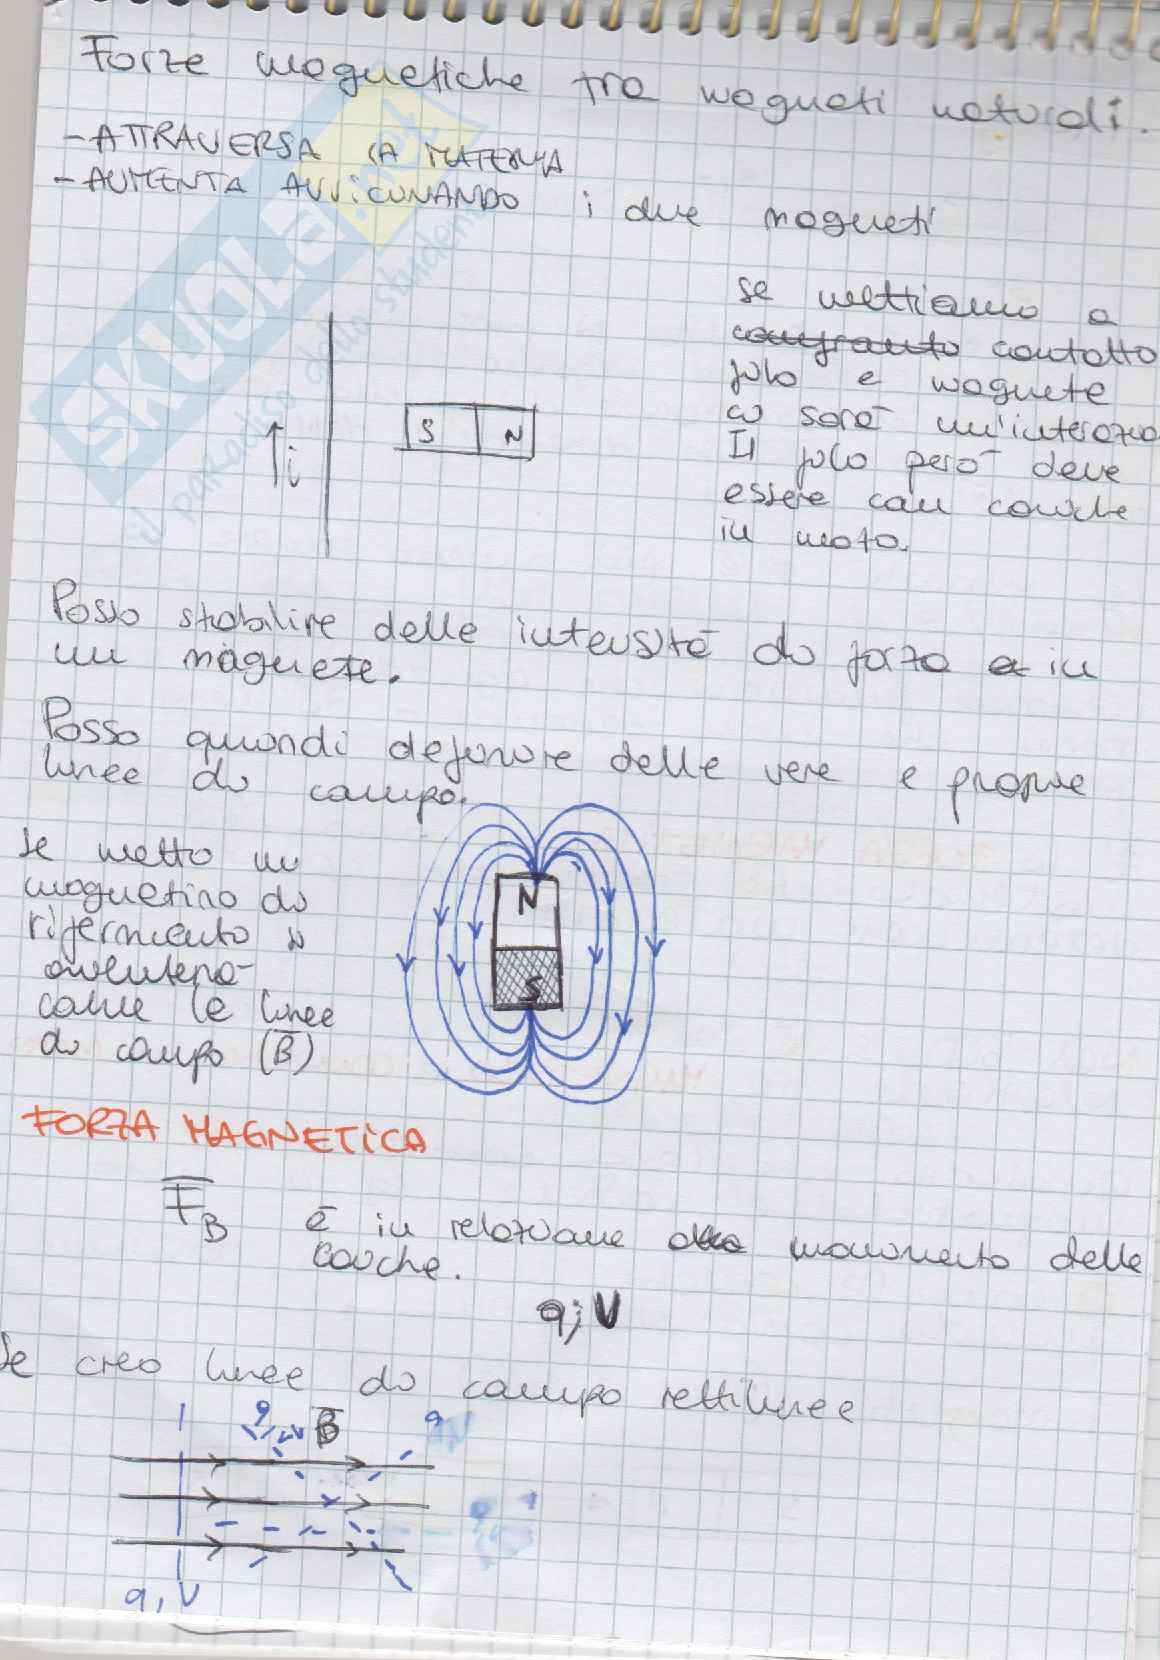 Forze magnetiche tra magneti naturali.
- ATTRAVERSA LA MATERIA
- AUMENTA AVVICINANDO i due magneti
SKUOLA.net
il paradiso dello studente
se mettiamo a
contatto
filo e magnete
ci sarà un'interazio
Il filo però deve
essere con cariche
in moto.
i
S N
Posso stabilire delle intensità di forza in
un magnete.
Posso quindi definire delle vere e proprie
linee di campo.
Se metto un
magnetino di
riferimento si
orienterà
come le linee
di campo (B̅)
N
S
FORZA MAGNETICA
F̅B è in relazione movimento delle
cariche.
q; V
Se creo linee di campo rettilinee
q V B̅ q
q, V